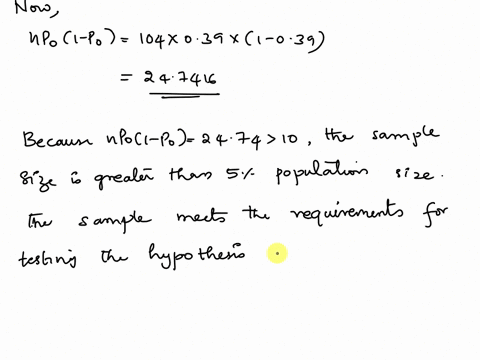 Now,
nP₀(1-P₀) = 104 × 0.39 × (1-0.39)
= 24.7416
Because nP₀(1-P₀)=24.74>10, the sample
size is greater than 5% population size.
The sample meets the requirements for
testing the hypothesis